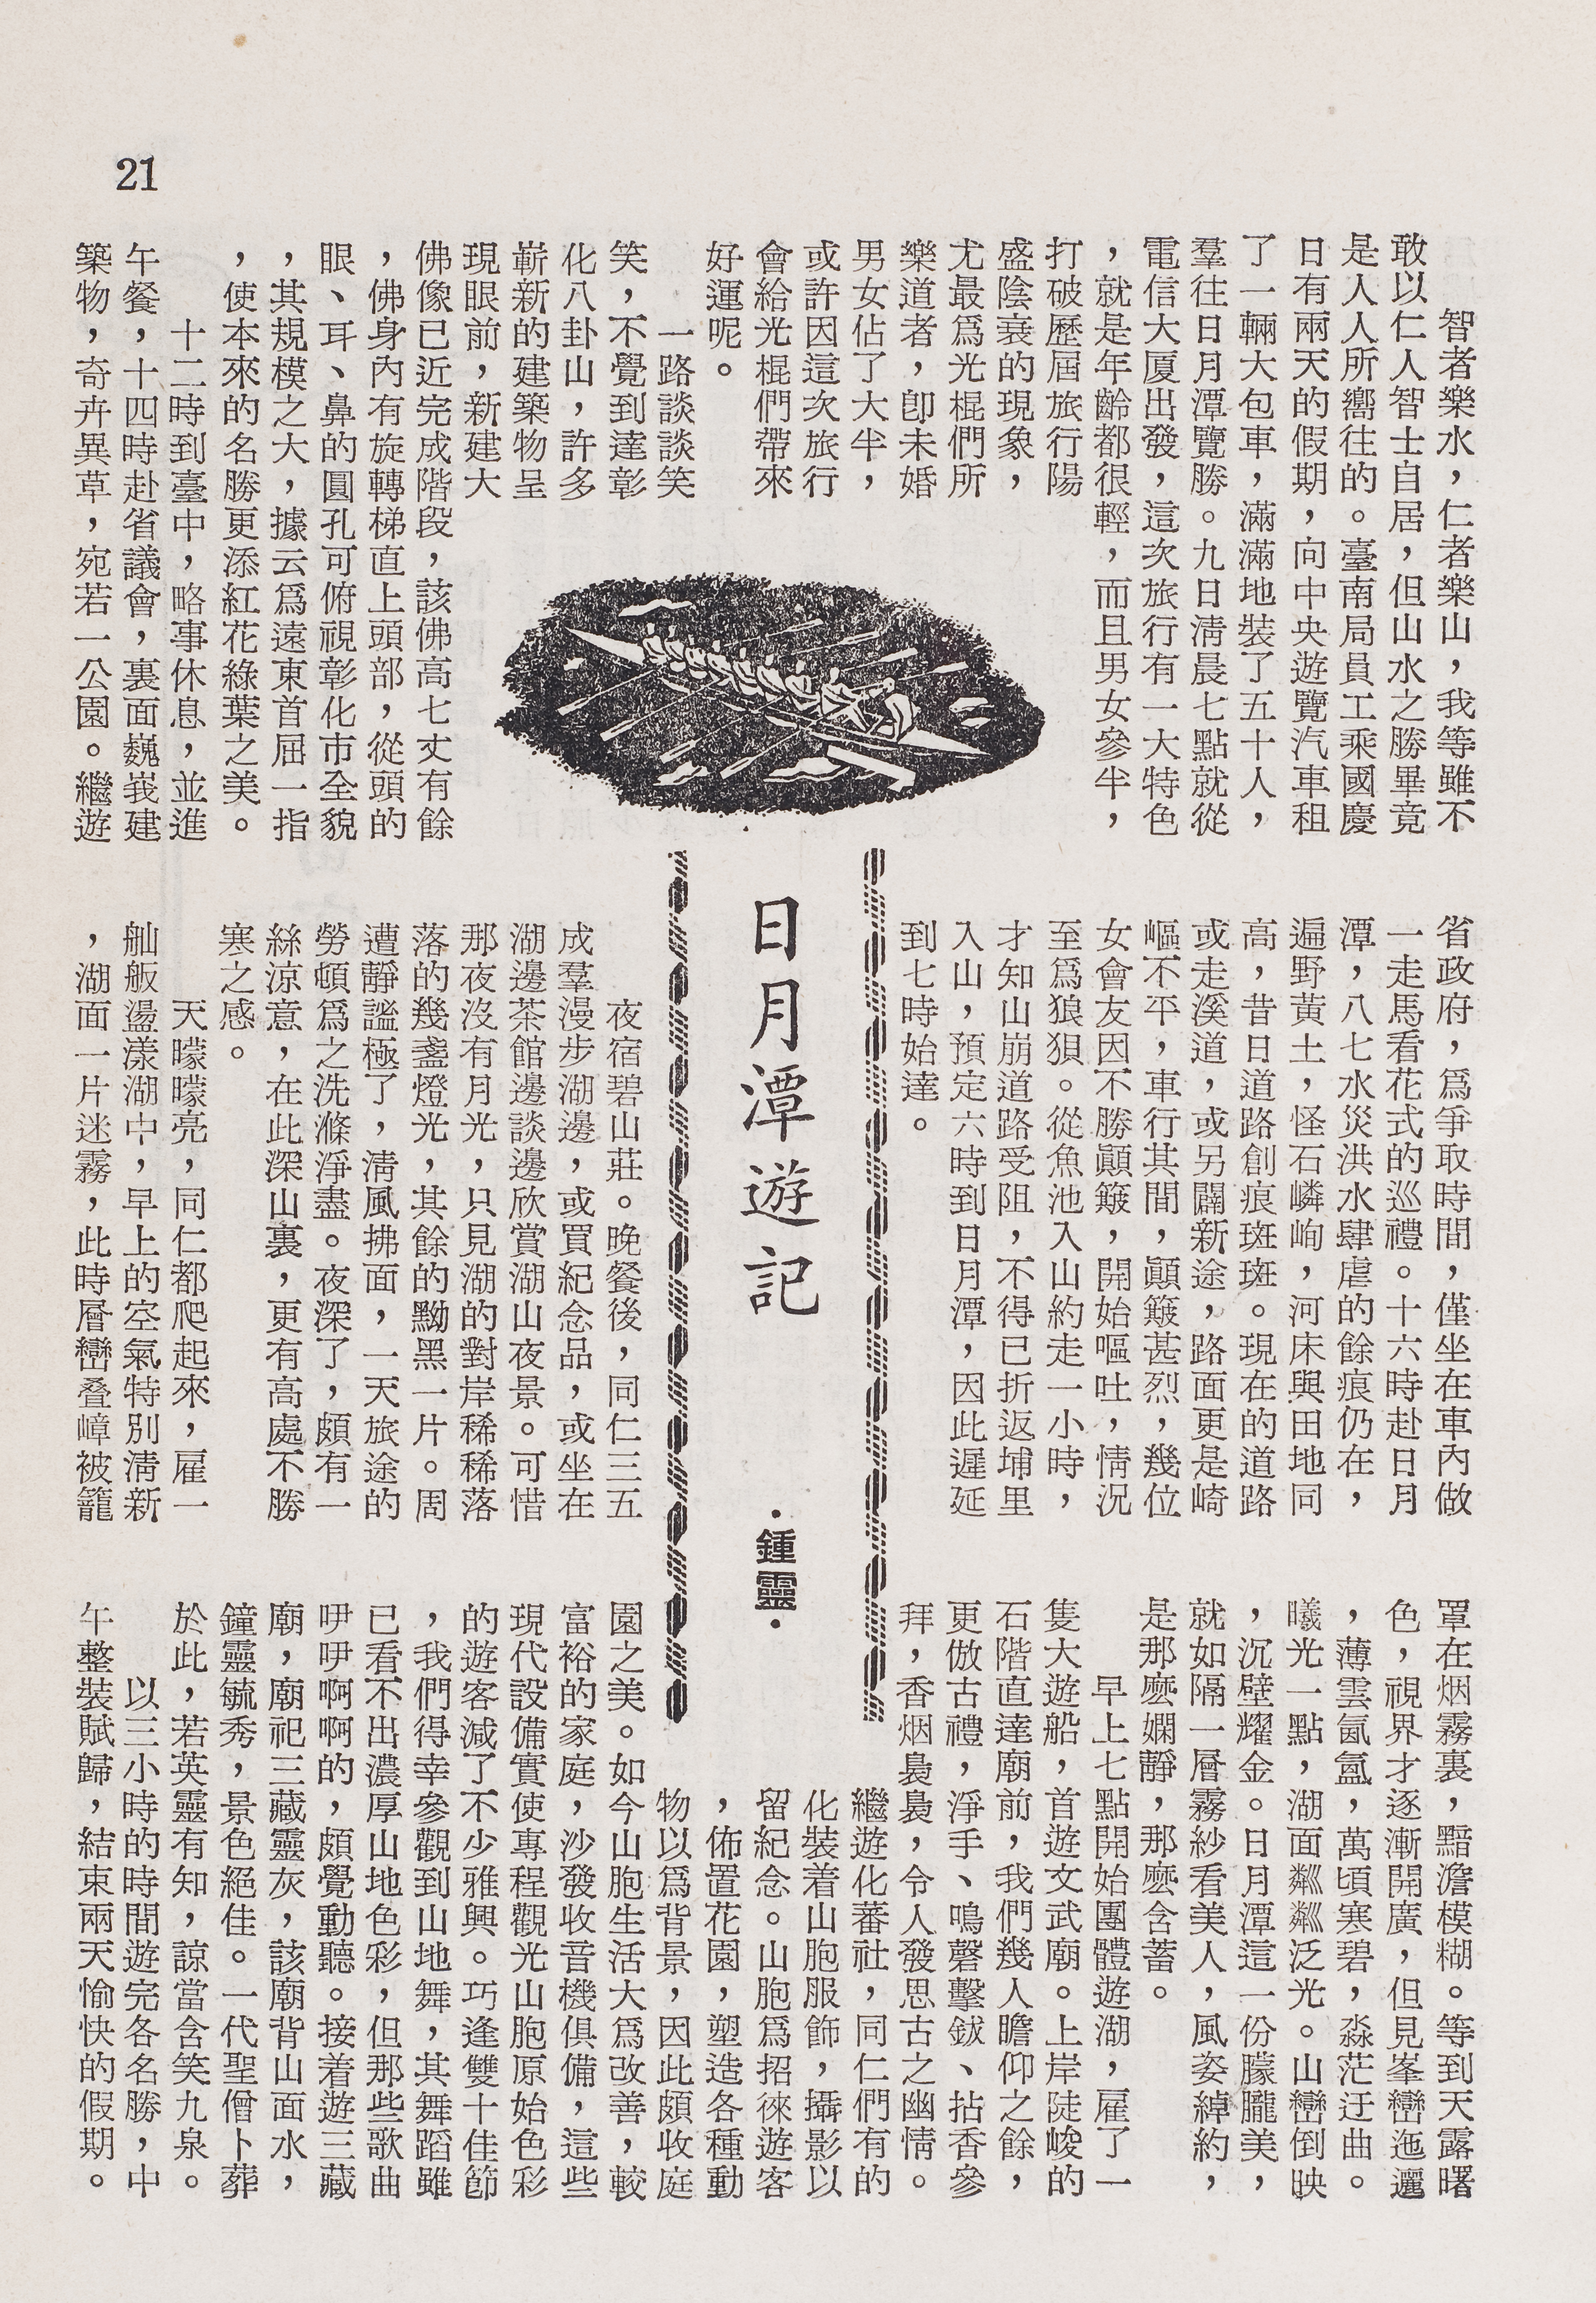 21
日月潭遊記
·鍾靈·
智者樂水，仁者樂山，我等雖不
敢以仁人智士自居，但山水之勝畢竟
是人人所嚮往的。臺南局員工乘國慶
日有兩天的假期，向中央遊覽汽車租
了一輛大包車，滿滿地裝了五十人，
羣往日月潭覽勝。九日淸晨七點就從
電信大厦出發，這次旅行有一大特色
，就是年齡都很輕，而且男女參半，
打破歷屆旅行陽
盛陰衰的現象，
尤最爲光棍們所
樂道者，卽未婚
男女佔了大半，
或許因這次旅行
會給光棍們帶來
好運呢。
一路談談笑笑
笑，不覺到達彰
化八卦山，許多
嶄新的建築物呈
現眼前，新建大
佛像已近完成階段，該佛高七丈有餘
，佛身內有旋轉梯直上頭部，從頭的
眼、耳、鼻的圓孔可俯視彰化市全貌
，其規模之大，據云爲遠東首屈一指
，使本來的名勝更添紅花綠葉之美。
十二時到臺中，略事休息，並進
午餐，十四時赴省議會，裏面巍峩建
築物，奇卉異草，宛若一公園。繼遊
省政府，爲爭取時間，僅坐在車內做
一走馬看花式的巡禮。十六時赴日月
潭，八七水災洪水肆虐的餘痕仍在，
遍野黃土，怪石嶙峋，河床與田地同
高，昔日道路創痕斑斑。現在的道路
或走溪道，或另闢新途，路面更是崎
嶇不平，車行其間，顚簸甚烈，幾位
女會友因不勝顚簸，開始嘔吐，情況
至爲狼狽。從魚池入山約走一小時，
才知山崩道路受阻，不得已折返埔里
入山，預定六時到日月潭，因此遲延
到七時始達。
夜宿碧山莊。晚餐後，同仁三五
成羣漫步湖邊，或買紀念品，或坐在
湖邊茶館邊談邊欣賞湖山夜景。可惜
那夜沒有月光，只見湖的對岸稀稀落
落的幾盞燈光，其餘的黝黑一片。周
遭靜謐極了，淸風拂面，一天旅途的
勞頓爲之洗滌淨盡。夜深了，頗有一
絲涼意，在此深山裏，更有高處不勝
寒之感。
天曚曚亮，同仁都爬起來，雇一
舢舨盪漾湖中，早上的空氣特別淸新
，湖面一片迷霧，此時層巒叠嶂被籠
罩在烟霧裏，黯澹模糊。等到天露曙
色，視界才逐漸開廣，但見峯巒迤邐
，薄雲氤氳，萬頃寒碧，淼茫迂曲。
曦光一點，湖面粼粼泛光。山巒倒映
，沉壁耀金。日月潭這一份朦朧美，
就如隔一層霧紗看美人，風姿綽約，
是那麽嫻靜，那麽含蓄。
早上七點開始團體遊湖，雇了一
隻大遊船，首遊文武廟。上岸陡峻的
石階直達廟前，我們幾人瞻仰之餘，
更倣古禮，淨手、鳴磬擊鈸、拈香參
拜，香烟裊裊，令人發思古之幽情。
繼遊化蕃社，同仁們有的
化裝着山胞服飾，攝影以
留紀念。山胞爲招徠遊客
，佈置花園，塑造各種動
物以爲背景，因此頗收庭
園之美。如今山胞生活大爲改善，較
富裕的家庭，沙發收音機俱備，這些
現代設備實使專程觀光山胞原始色彩
的遊客減了不少雅興。巧逢雙十佳節
，我們得幸參觀到山地舞，其舞蹈雖
已看不出濃厚山地色彩，但那些歌曲
咿咿啊啊的，頗覺動聽。接着遊三藏
廟，廟祀三藏靈灰，該廟背山面水，
鐘靈毓秀，景色絕佳。一代聖僧卜葬
於此，若英靈有知，諒當含笑九泉。
以三小時的時間遊完各名勝，中
午整裝賦歸，結束兩天愉快的假期。